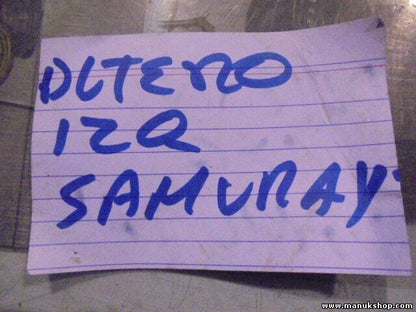 DLTERO
IZQ
SAMURAY
www.manukshop.com